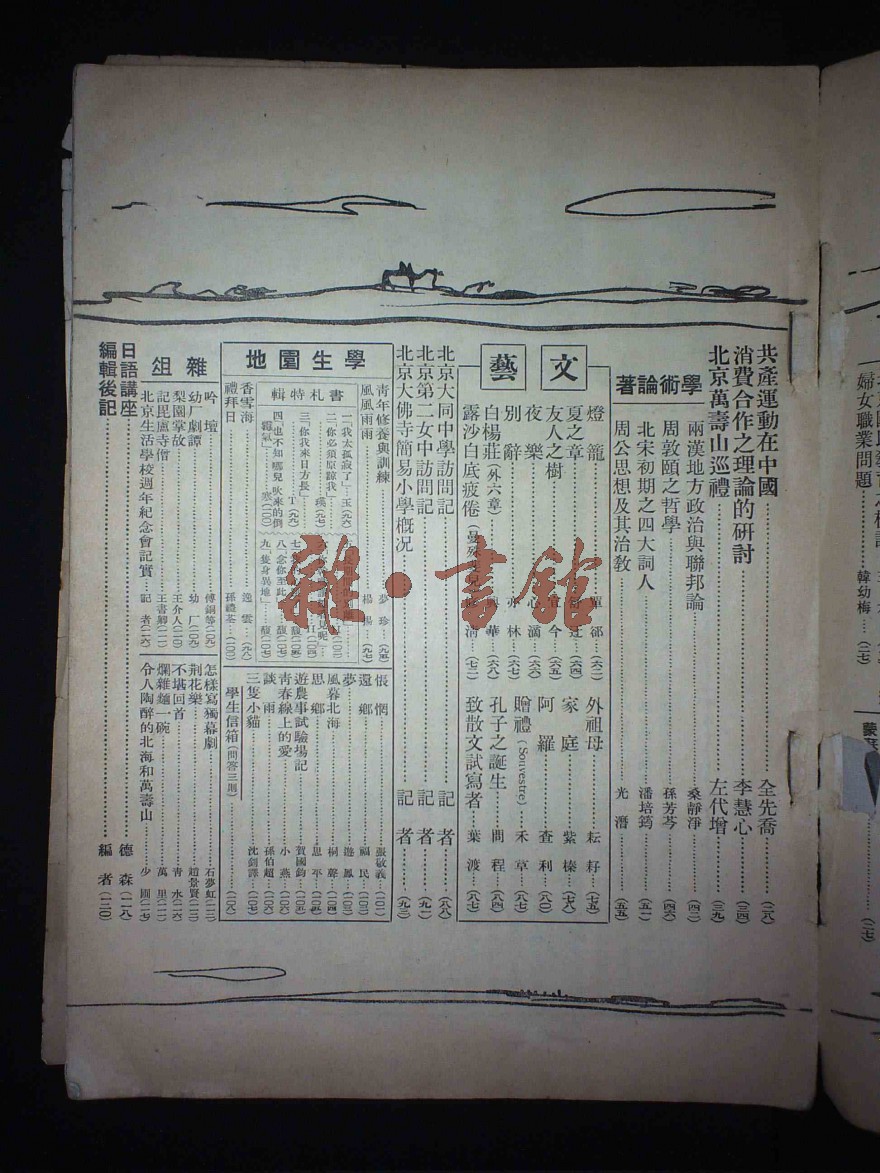 共產運動在中國 全先喬 (二八)
消費合作之理論的研討 李慧心 (三四)
北京萬壽山巡禮 左代增 (三九)
學術論著
兩漢地方政治與聯邦論 桑靜淨 (四二)
周敦頤之哲學 孫芳芩 (四六)
北宋初期之四大詞人 潘培筠 (五一)
周公思想及其治教 光潛 (五五)
文藝
燈籠 單郤 (六二)
夏之章
友人之樹 今 (六五)
夜樂 心滴 (六六)
別辭 亦林 (六七)
白楊莊 (外六章) 華 (六八)
露沙白底疲倦 (七二)
外祖母 耘耔 (七五)
家庭 紫榛 (七八)
阿羅 查利 (八〇)
贈禮 (Souvestre) 禾草 (八七)
孔子之誕生 問程 (八四)
致散文試寫者 葉渡 (八七)
北京大同中學訪問記 記者 (八八)
北京第二女中訪問記 記者 (九一)
北京大佛寺簡易小學概況 記者 (九三)
學生園地
青年修養與訓練 夢珍 (九五)
風風雨雨 楊楊 (九七)
書札特輯
一、「我太孤寂了」 玉 (九六)
二、你必須原諒我」 瑛 (九七)
三、「你我來日方長」 T (九八)
四、也不知哪兒吹來的倒霉氣」 寒 (一〇〇)
八、念你至此
九、「隻身異地」 馥 (一〇七)
香雪海 逸雲 (九八)
禮拜日 孫禮荃 (一〇〇)
悵惘 張敬義 (一〇一)
還鄉 福民 (一〇三)
夢 遊鳳 (一〇三)
風暮北海 桐聲 (一〇四)
思鄉 思平 (一〇五)
遊農事試驗場記 賀國鈞 (一〇五)
青春線上的愛 小燕 (一〇六)
談雨 孫伯超 (一〇六)
三隻小貓 沈釗譯 (一〇七)
學生信箱 (問答三則) (一〇八)
雜俎
吟壇 傅銅等 (一〇九)
幼厂劇譚 幼厂 (一〇九)
梨園掌故 王介人 (一一〇)
記毘盧寺僧 王書卿 (一一一)
北京生活學校週年紀念會記實 記者 (一一六)
怎樣寫獨幕劇 石夢虹 (一一二)
荆花樂 趙景賢 (一一三)
不堪回首 青水 (一一六)
爛雜麵一碗 萬里
令人陶醉的北海和萬壽山 少圃 (一一七)
日語講座 德森 (一一八)
編輯後記 編者 (一二〇)
婦女職業問題 韓幼梅 (二七)
雜·書館